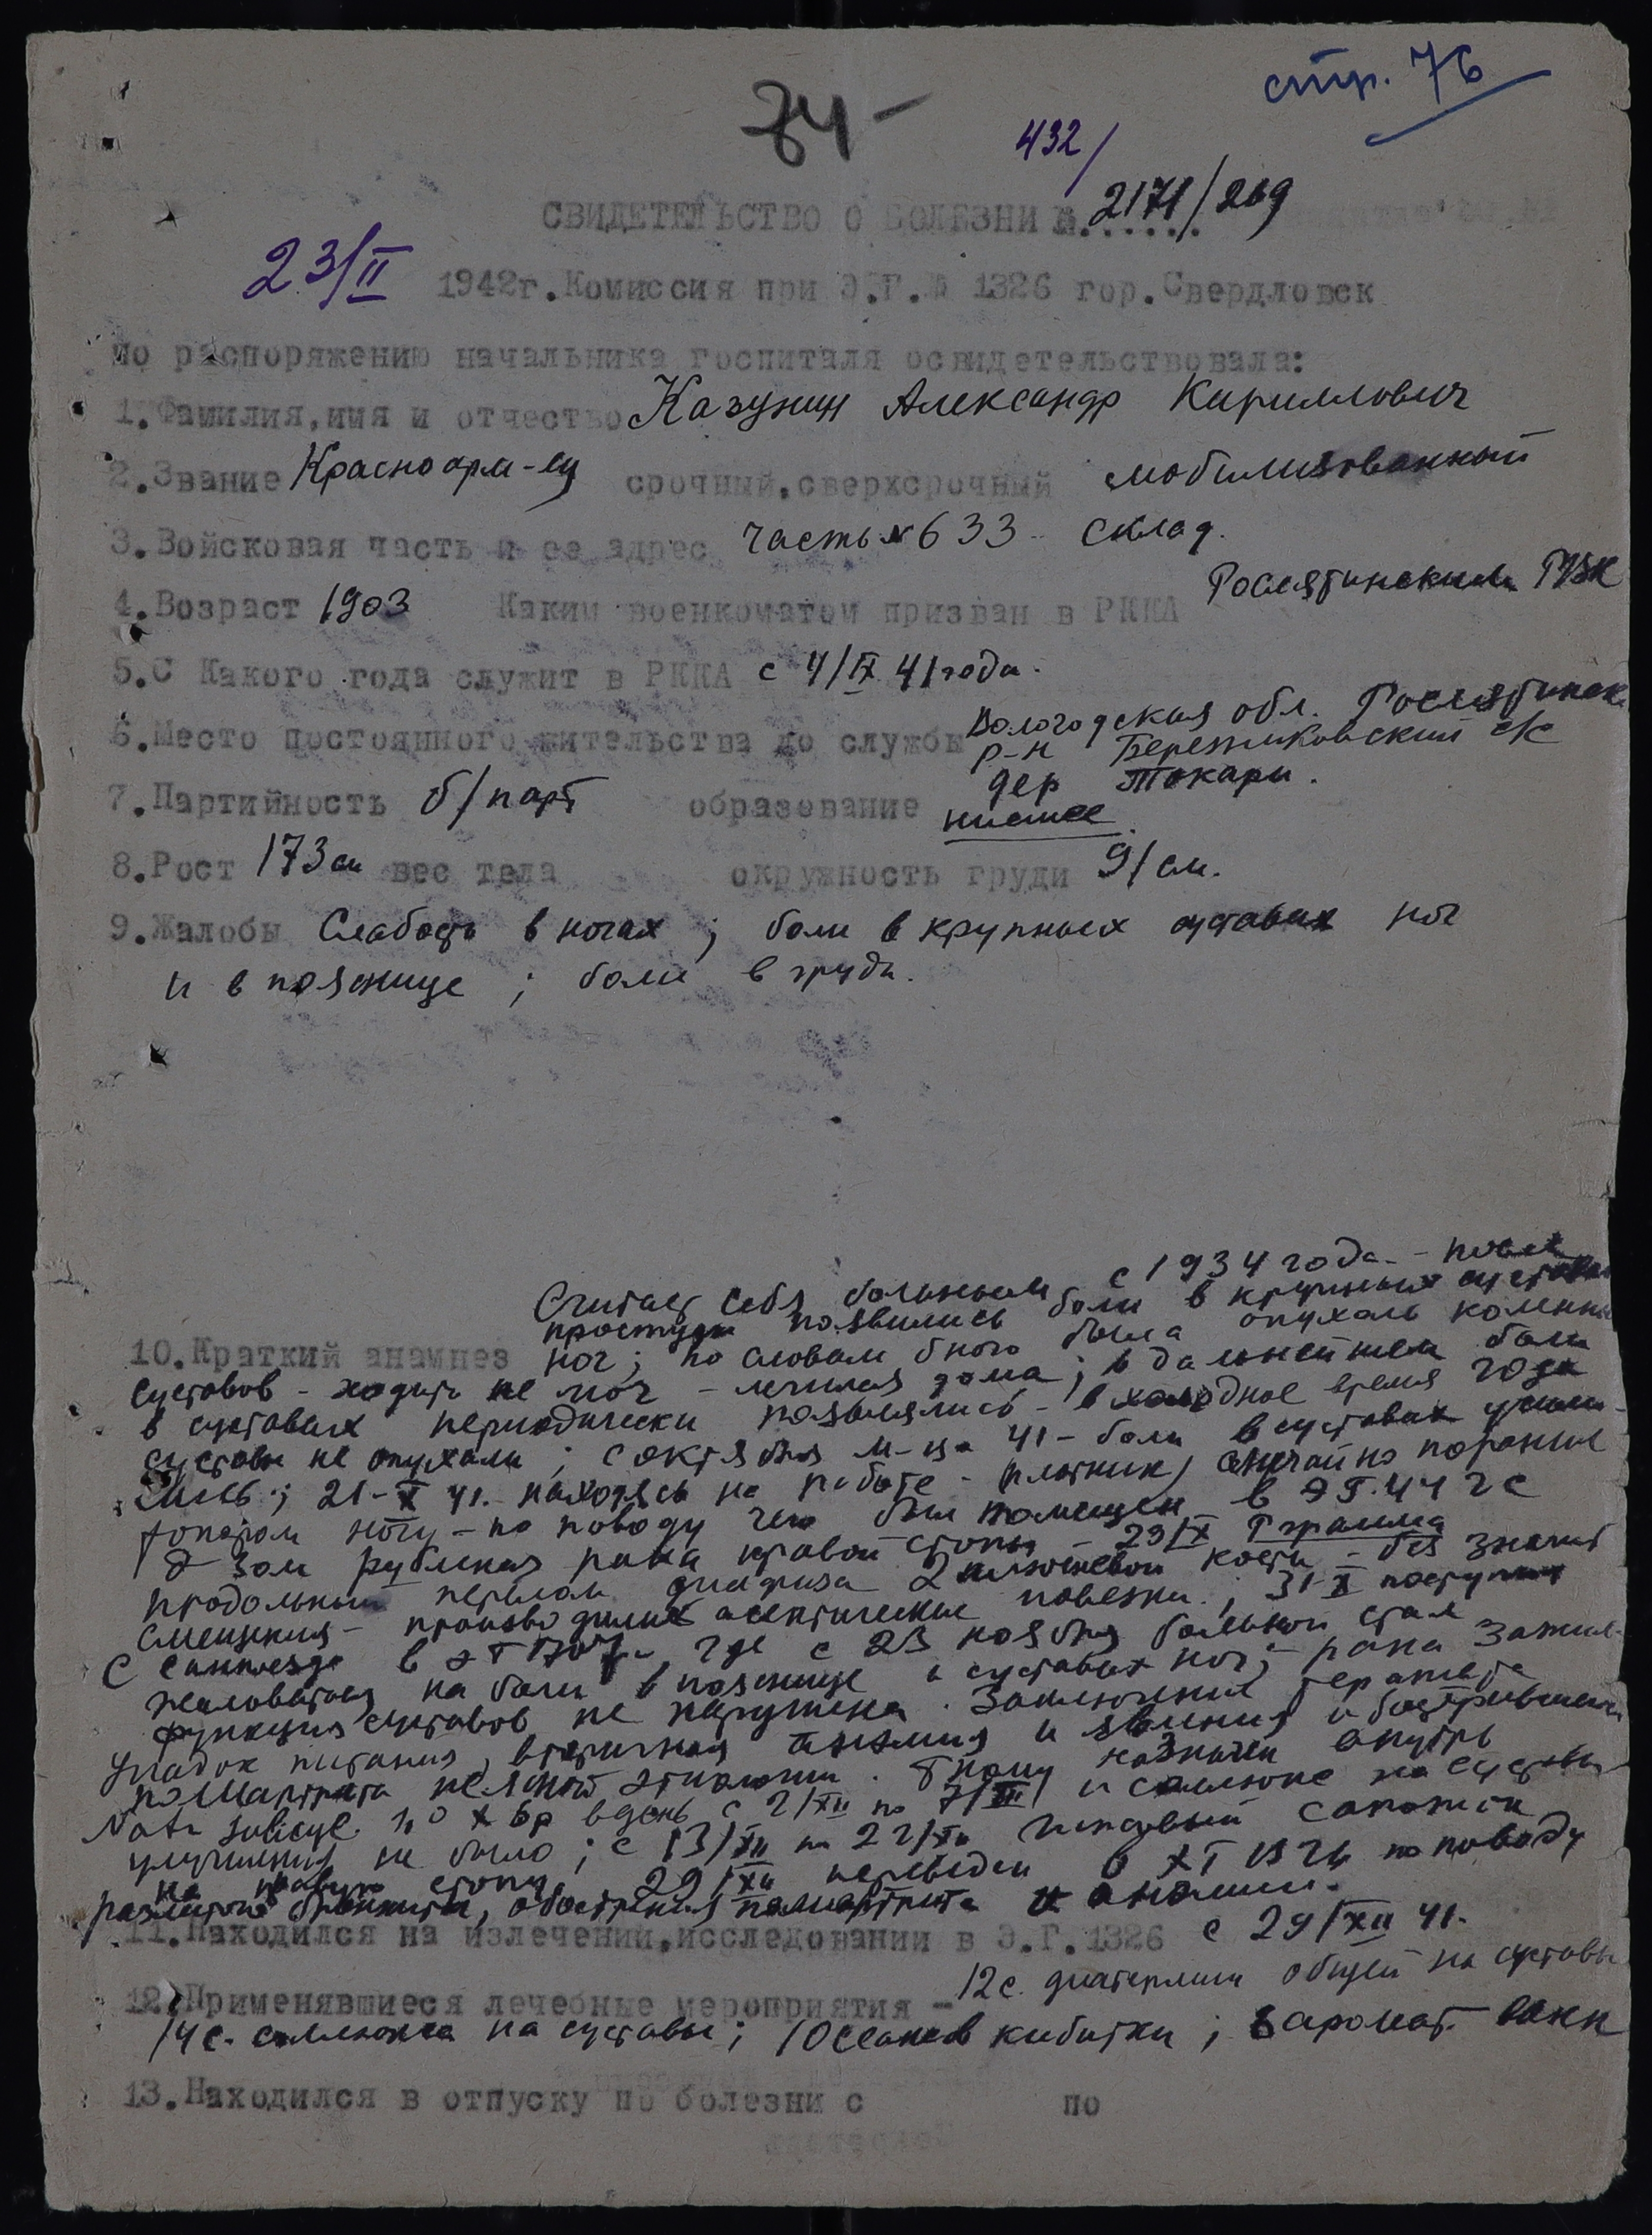 стр. 76
84-
432/
СВИДЕТЕЛЬСТВО О БОЛЕЗНИ № 2171/269
23/II 1942г. Комиссия при Э.Г.№ 1326 гор. Свердловск
по распоряжению начальника госпиталя освидетельствовала:
1. Фамилия, имя и отчество Казунин Александр Кириллович
2. Звание Красноарм-ец срочный, сверхсрочный мобилизованный
3. Войсковая часть и ее адрес часть №633 склад.
4. Возраст 1903 Каким военкоматом призван в РККА Рослятинским РВК
5. С Какого года служит в РККА с 4/IX 41 года.
6. Место постоянного жительства до службы Вологодская обл. Рослятинск
р-н Бережниковский с/с
дер Токари.
7. Партийность б/парт образование низшее
8. Рост 173 см вес тела окружность груди 91 см.
9. Жалобы Слабость в ногах; боли в крупных суставах ног
и в пояснице; боли в груди.
Считает себя больным с 1934 года - после
простуды появились боли в крупных суставах
10. Краткий анамнез ног; по словам б-ного была опухоль коленных
суставов - ходить не мог - лечился дома; в дальнейшем боли
в суставах периодически появлялись - в холодное время года
суставы не опухали; с октября м-ца 41 - боли в суставах усили-
лись; 21-X 41. находясь на работе - плотник, случайно поранил
топором ногу - по поводу чего был помещен в ЭГ. 44 2 с
рубленая рана правой стопы - 29/IX Рграмма
продольный перелом диафиза 2 плюсневой кости - без значит
смещения - производились асептические повязки; 31-X поступил
с санпоезда в ЭГ 1707, где с 23 ноября больной стал
жаловаться на боли в пояснице и суставах ног; рана зажив-
функция суставов не нарушена. Заключение терапевта
упадок питания, вторичная анемия и явления обострившегося
полиартрита неясной этиологии. б-ному назначен внутрь
Natr salicyl. 1,0 х 6р в день с 2/XII по 7/XII и соллюкс на суставы
улучшения не было; с 13/XII по 22/XII гипсовый сапожок
на правую стопу. 29/XII переведен в ЭГ 1326 по поводу
разлитого бронхита, обострения полиартрита и анемии.
11. Находился на излечении, исследовании в Э.Г. 1326 с 29/XII 41.
12. Применявшиеся лечебные мероприятия - 12 с. диатермии общей на суставы
14 с. соллюкса на суставы; 10 сеансов кибитки; 6 аромат. ванн
13. Находился в отпуску по болезни с по